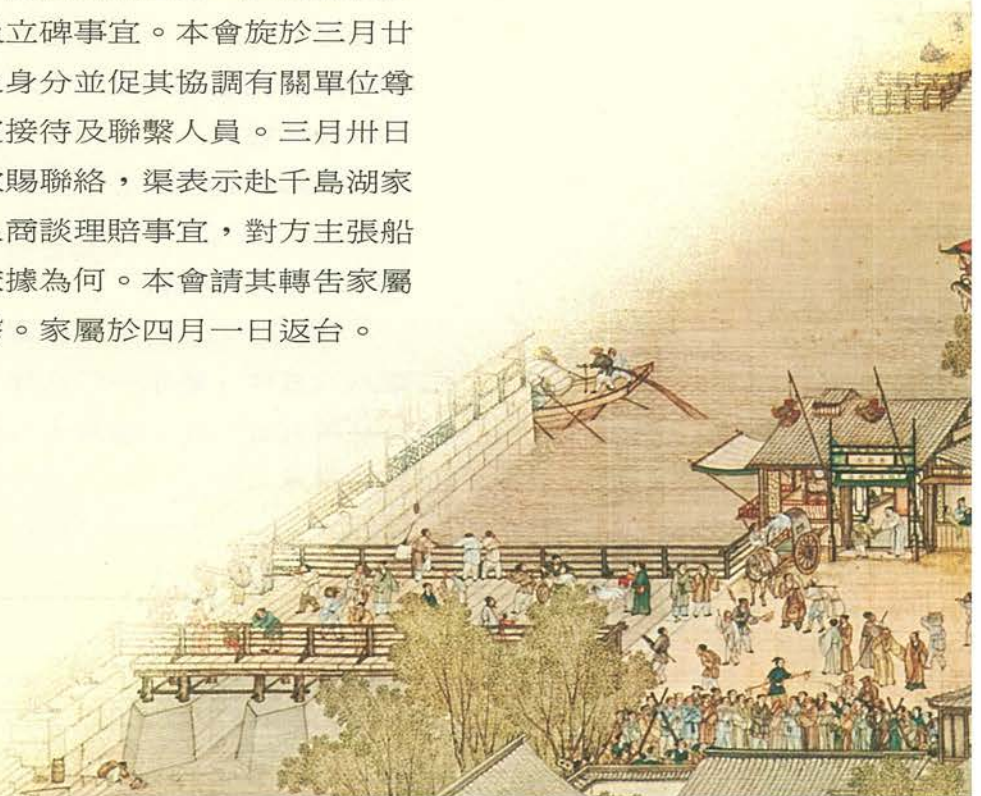 立碑事宜。本會旋於三月廿
身分並促其協調有關單位尊
接待及聯繫人員。三月卅日
賜聯絡，渠表示赴千島湖家
商談理賠事宜，對方主張船
據為何。本會請其轉告家屬
。家屬於四月一日返台。